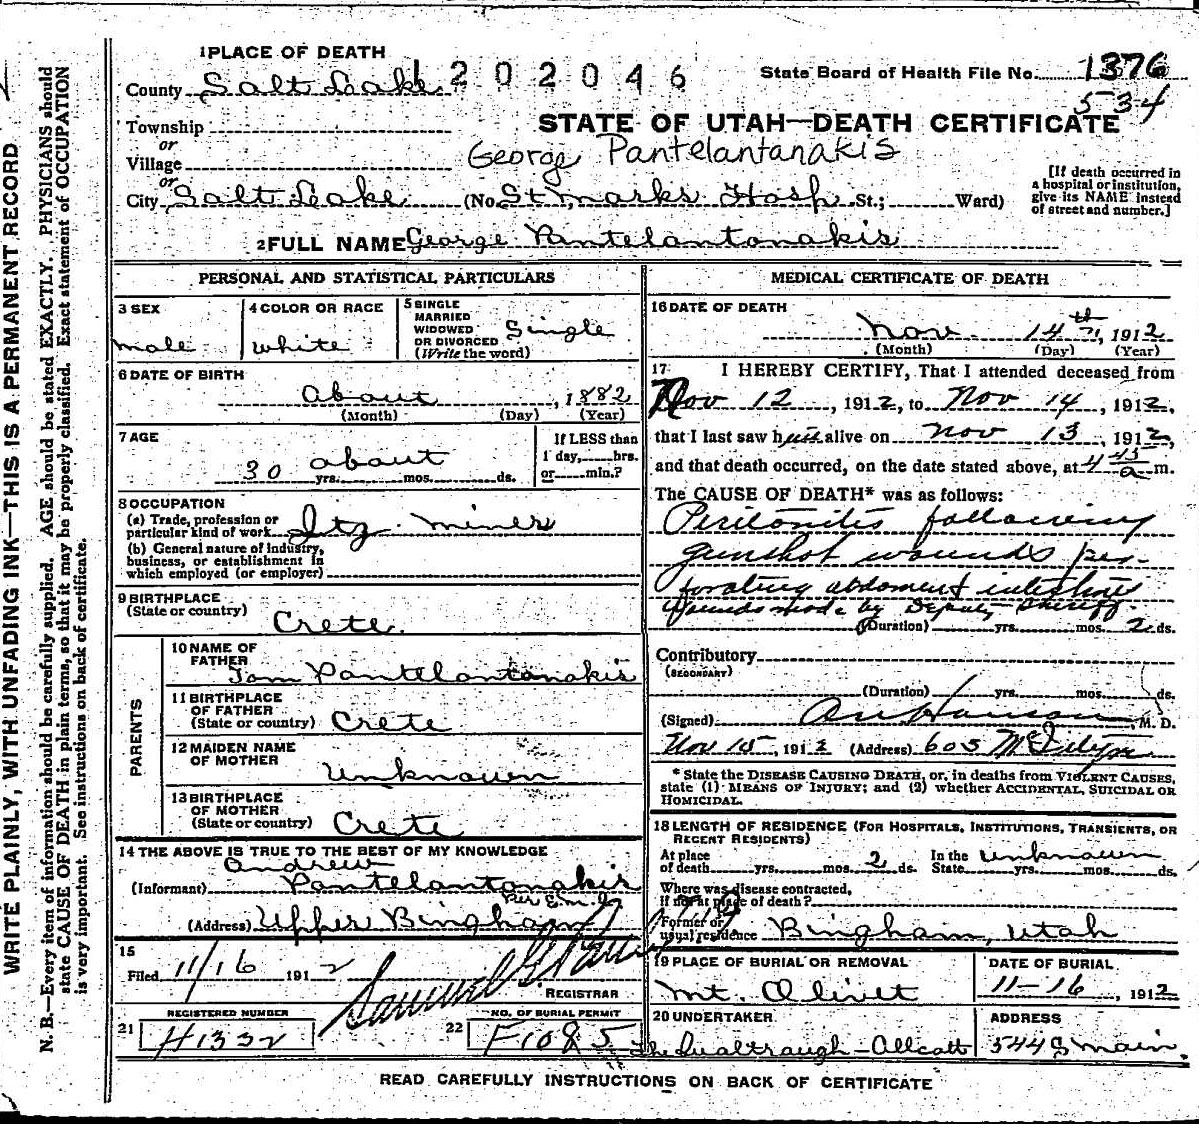 WRITE PLAINLY, WITH UNFADING INK—THIS IS A PERMANENT RECORD
N. B.—Every item of information should be carefully supplied. AGE should be stated EXACTLY. PHYSICIANS should
state CAUSE OF DEATH in plain terms, so that it may be properly classified. Exact statement of OCCUPATION
is very important. See instructions on back of certificate.
1 PLACE OF DEATH
County Salt Lake
1202046
State Board of Health File No. 1376
534
STATE OF UTAH—DEATH CERTIFICATE
Township
or
Village
George Pantelantanakis
or
City Salt Lake (No. St Marks Hosp St.; Ward)
[If death occurred in
a hospital or institution,
give its NAME instead
of street and number.]
2 FULL NAME George Pantelantonakis
PERSONAL AND STATISTICAL PARTICULARS
3 SEX
male
4 COLOR OR RACE
white
5 SINGLE
MARRIED
WIDOWED
OR DIVORCED
(Write the word)
Single
6 DATE OF BIRTH
About , 1882
(Month) (Day) (Year)
7 AGE
30 about
yrs. mos. ds.
If LESS than
1 day, hrs.
or min.?
8 OCCUPATION
(a) Trade, profession or
particular kind of work miner
(b) General nature of industry,
business, or establishment in
which employed (or employer)
9 BIRTHPLACE
(State or country)
Crete.
PARENTS
10 NAME OF
FATHER
Tom Pantelantanakis
11 BIRTHPLACE
OF FATHER
(State or country) Crete
12 MAIDEN NAME
OF MOTHER
Unknown
13 BIRTHPLACE
OF MOTHER
(State or country) Crete
14 THE ABOVE IS TRUE TO THE BEST OF MY KNOWLEDGE
Andrew
(Informant) Pantelantonakis
(Address) Upper Bingham
15
Filed 11/16 1912
REGISTRAR
21
REGISTERED NUMBER
H1332
22
NO. OF BURIAL PERMIT
F1085
MEDICAL CERTIFICATE OF DEATH
16 DATE OF DEATH
Nov. 14th, 1912
(Month) (Day) (Year)
17 I HEREBY CERTIFY, That I attended deceased from
Nov 12, 1912, to Nov 14, 1912,
that I last saw him alive on Nov 13, 1912,
and that death occurred, on the date stated above, at 4 45 a m.
The CAUSE OF DEATH* was as follows:
Peritonitis following
gunshot wounds per-
forating abdomen & intestines
Wounds made by Deputy Sheriff.
(Duration) yrs. mos. 2 ds.
Contributory
(SECONDARY)
(Duration) yrs. mos. ds.
(Signed) M. D.
Nov 15, 1912 (Address) 605 McIntyre
* State the DISEASE CAUSING DEATH, or, in deaths from VIOLENT CAUSES,
state (1) MEANS OF INJURY; and (2) whether ACCIDENTAL, SUICIDAL OR
HOMICIDAL.
18 LENGTH OF RESIDENCE (FOR HOSPITALS, INSTITUTIONS, TRANSIENTS, OR
RECENT RESIDENTS)
At place
of death yrs. mos. 2 ds.
In the
State unknown yrs. ds.
Where was disease contracted,
If not at place of death?
Former or
usual residence Bingham, Utah
19 PLACE OF BURIAL OR REMOVAL
Mt. Olivet
DATE OF BURIAL
11-16, 1912
20 UNDERTAKER
ADDRESS
544 S Main.
READ CAREFULLY INSTRUCTIONS ON BACK OF CERTIFICATE